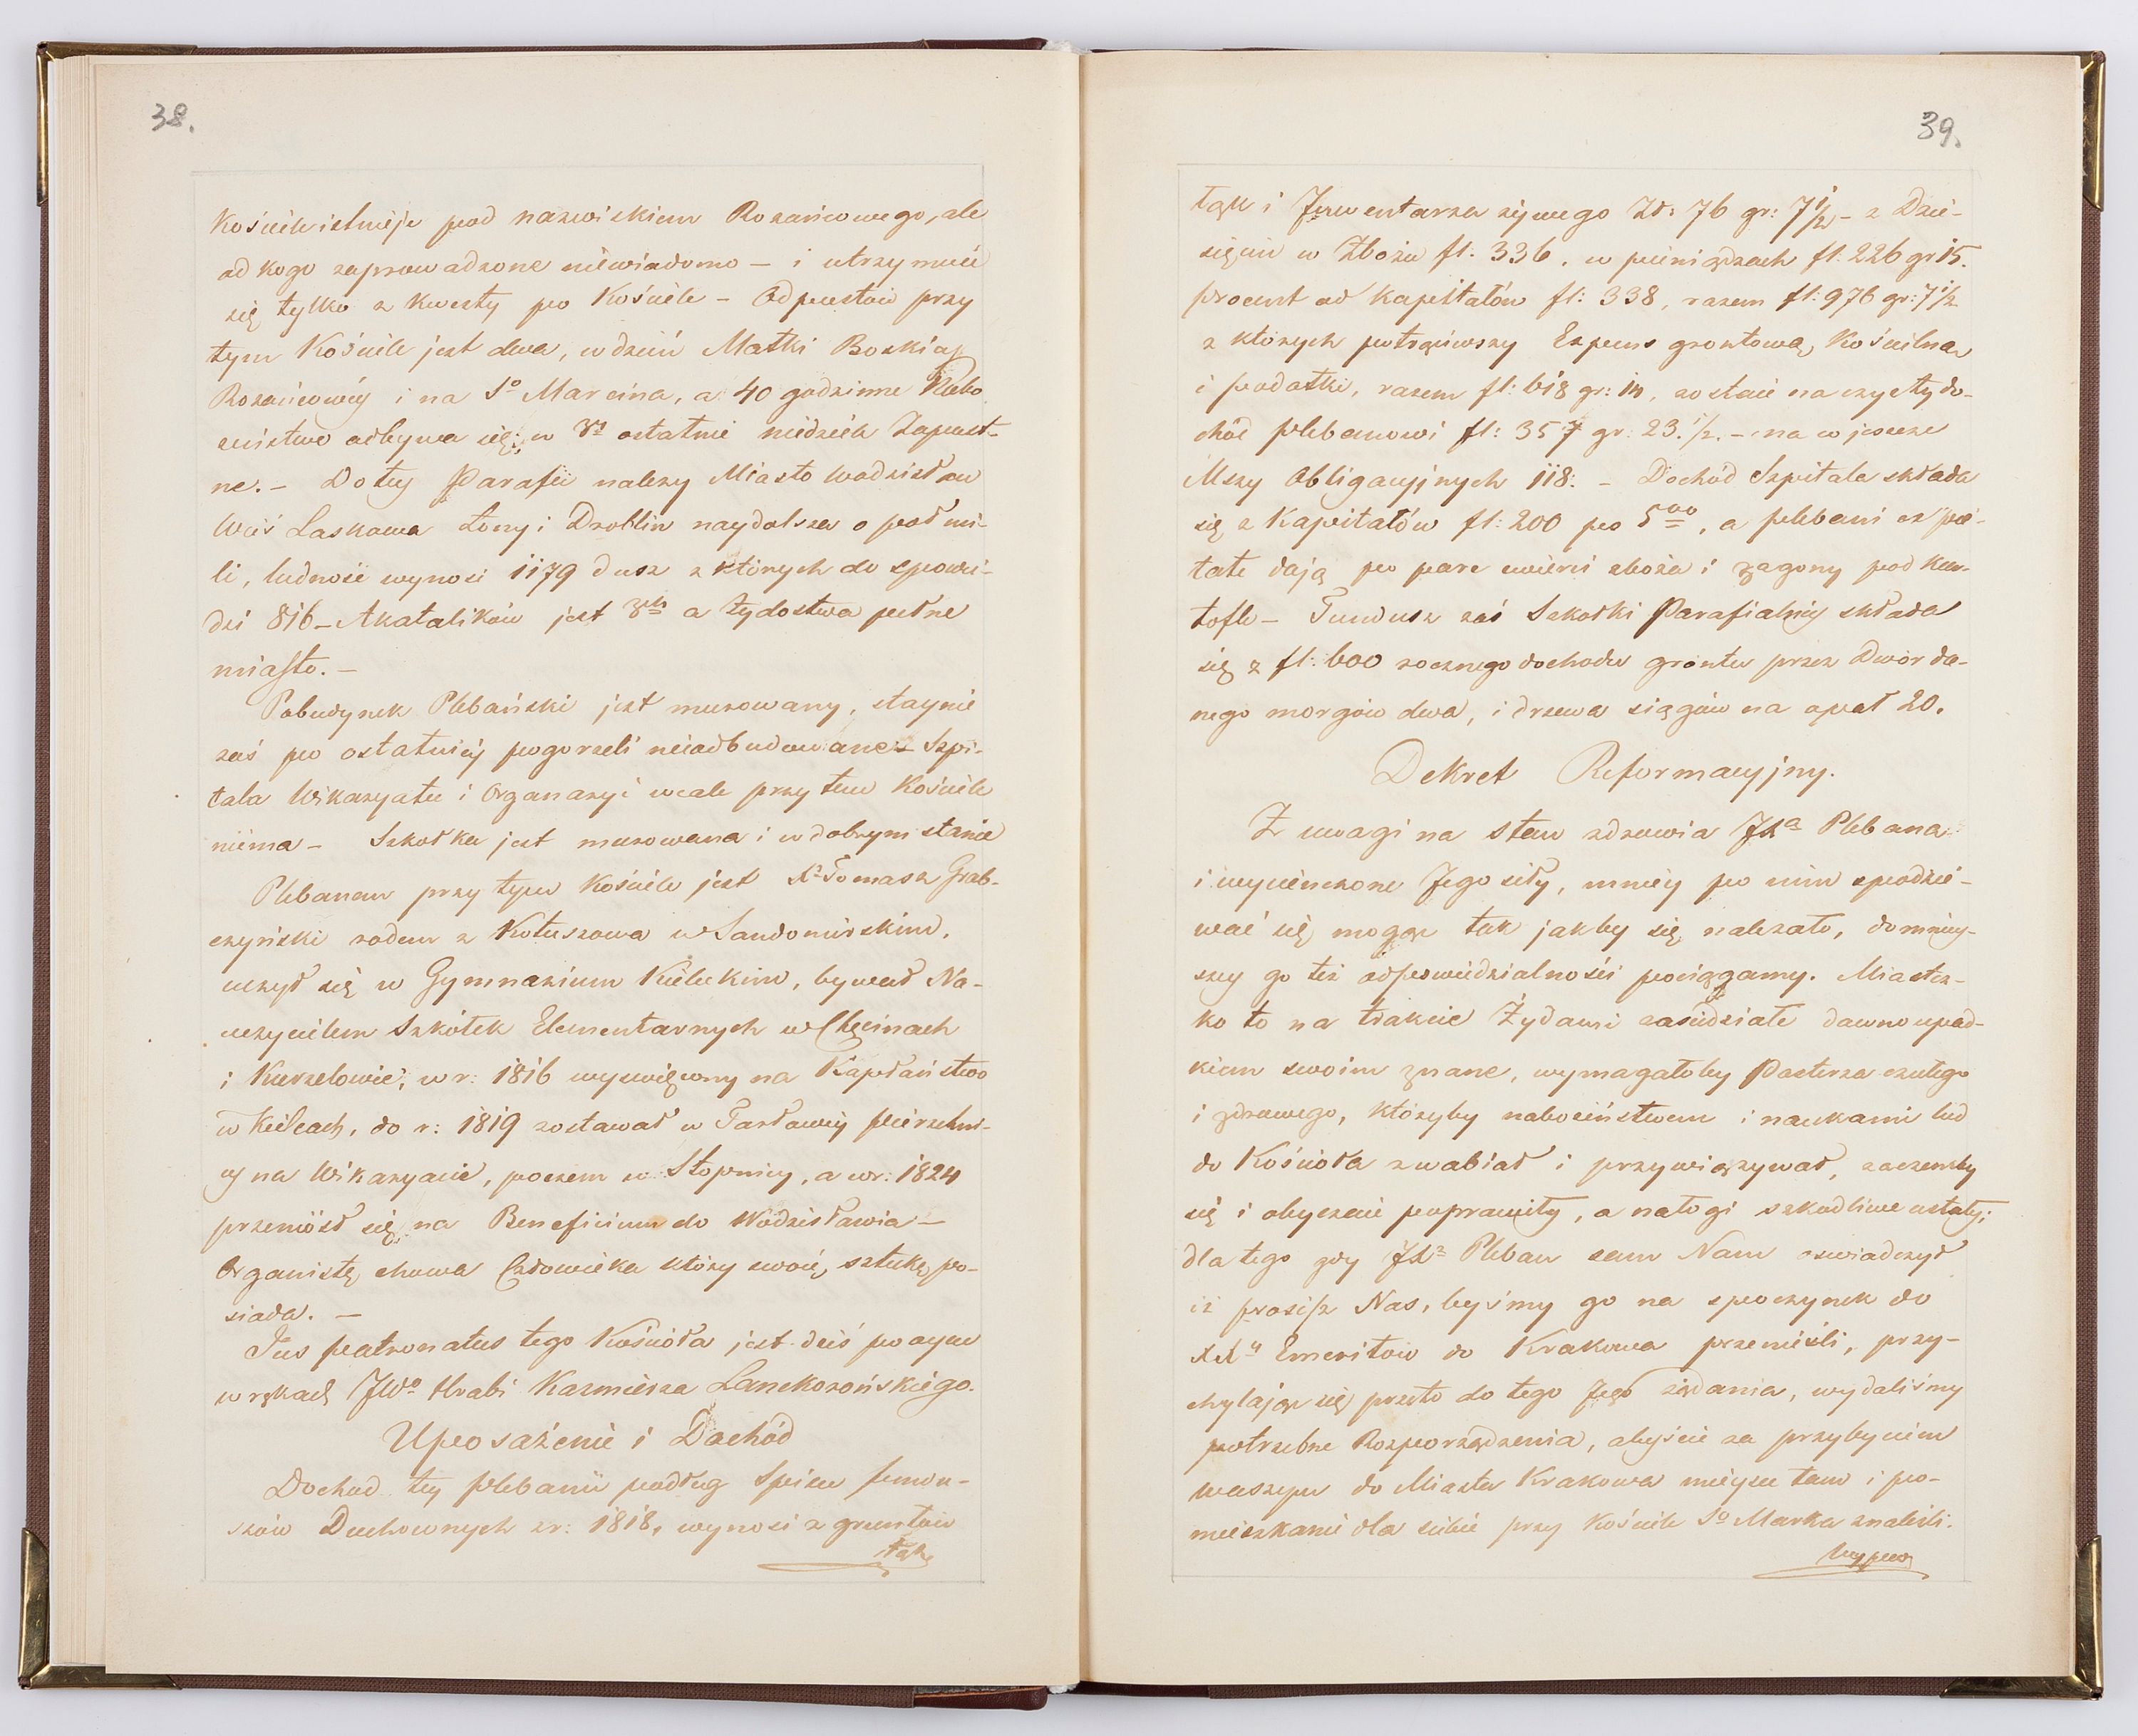 38.
Kościele istnieje pod nazwiskiem Rozańcowego, ale
od kogo zaprowadzone niewiadomo — i utrzymuie
się tylko z kwesty po Kościele — Odpustów przy
tym Kościele jest dwa, w dzień Matki Boskiey
Rozańcowéy i na So Marcina, a 40 godzinne Nabo
żeństwo odbywa się w 3y ostatnie niedziele Zapust-
ne. — Do tey Parafii należy Miasto Wodzisław
Wieś Laskowa Łony i Droblin naydalsza o pół mi-
li, ludność wynosi 1179 dusz z których do spowie-
dzi 816 — Akatolików jest 3ch a żydostwa pełne
miasto. —
Pobudynek Plebański jest murowany, staynie
zaś po ostatniéy pogorzeli nieodbudowane — Szpi-
tala Wikaryatu i Organaryi wcale przy tem Kościele
niema — Szkołka jest murowana i w dobrym stanie
Plebanem przy tym Kościele jest X. Tomasz Grab-
czyński rodem z Kotuszowa w Sandomirskim,
uczył się w Gymnazium Kieleckim, bywał Na-
uczycielem Szkółek Elementarnych w Chęcinach
i Kurzelowie, w r: 1816 wyswięcony na Kapłaństwo
w Kielcach, do r: 1819 zostawał w Tarławéy Pierzchni-
cy na Wikaryacie, poczem w Stopnicy, a w r: 1824
przeniósł się na Beneficium do Wodzisławia —
Organistę chowa Człowieka który swoię sztukę po-
siada. —
Jus patronatus tego Kościoła jest dziś po oycu
w rękach JWo Hrabi Kazmierza Lanckorońskiego.
Uposażenie i Dochód
Dochod tey Plebanii podług Spisu fundu-
szów Duchownych z r: 1818, wynosi z gruntów
łąk
39.
łąk i Inwentarza żywego Zł: 76 gr: 7 1/2 — z Dzie-
sięcin w Zbożu fl: 336, w pieniądzach fl: 226 gr 15.
procent od Kapitałów fl: 338, razem fl: 976 gr: 7 1/2
z których potrąciwszy Expens grontową, Kościelną
i podatki, razem fl: 618 gr: 14, zostaie na czysty do-
chód Plebanowi fl: 357 gr: 23. 1/2. — na co jeszcze
Mszy Obligacyjnych 118: — Dochód Szpitala składa
się z Kapitałów fl: 200 po 5oo, a plebani ex pie-
tate dają po parę ćwierci zboża i zagony pod kar-
tofle — Fundusz zaś Szkołki Parafialnéy składa
się z fl: 600 rocznego dochodu grontu przez Dwór da-
nego morgów dwa, i drzewa siągów na opał 20.
Dekret Reformacyjny.
Z uwagi na stan zdrowia JXa Plebana
i wycieńczone Jego siły, mniéy po nim spodzie-
wać się mogąc tak jakby się należało, do mniey-
szey go też odpowiedzialności pociągamy. Miastecz-
ko to na trakcie Żydami zasiedziałe dawno upad-
kiem swoim znane, wymagałoby Pasterza czułego
i zdrowego, któryby nabożeństwem i naukami lud
do Kościoła zwabiał i przywiązywał, zaczemby
się i obyczaie poprawiły, a nałogi szkodliwe ustały;
dla tego gdy JX Pleban sam Nam oswiadczył
iż prosi Nas, byśmy go na spoczynek do
XXy Emeritów do Krakowa przenieśli, przy-
chylając się przeto do tego Jego żądania, wydaliśmy
potrzebne Rozporządzenia, abyście za przybyciem
waszym do Miasta Krakowa mieysce tam i po-
mieszkanie dla siebie przy Kościele So Marka znaleźli.